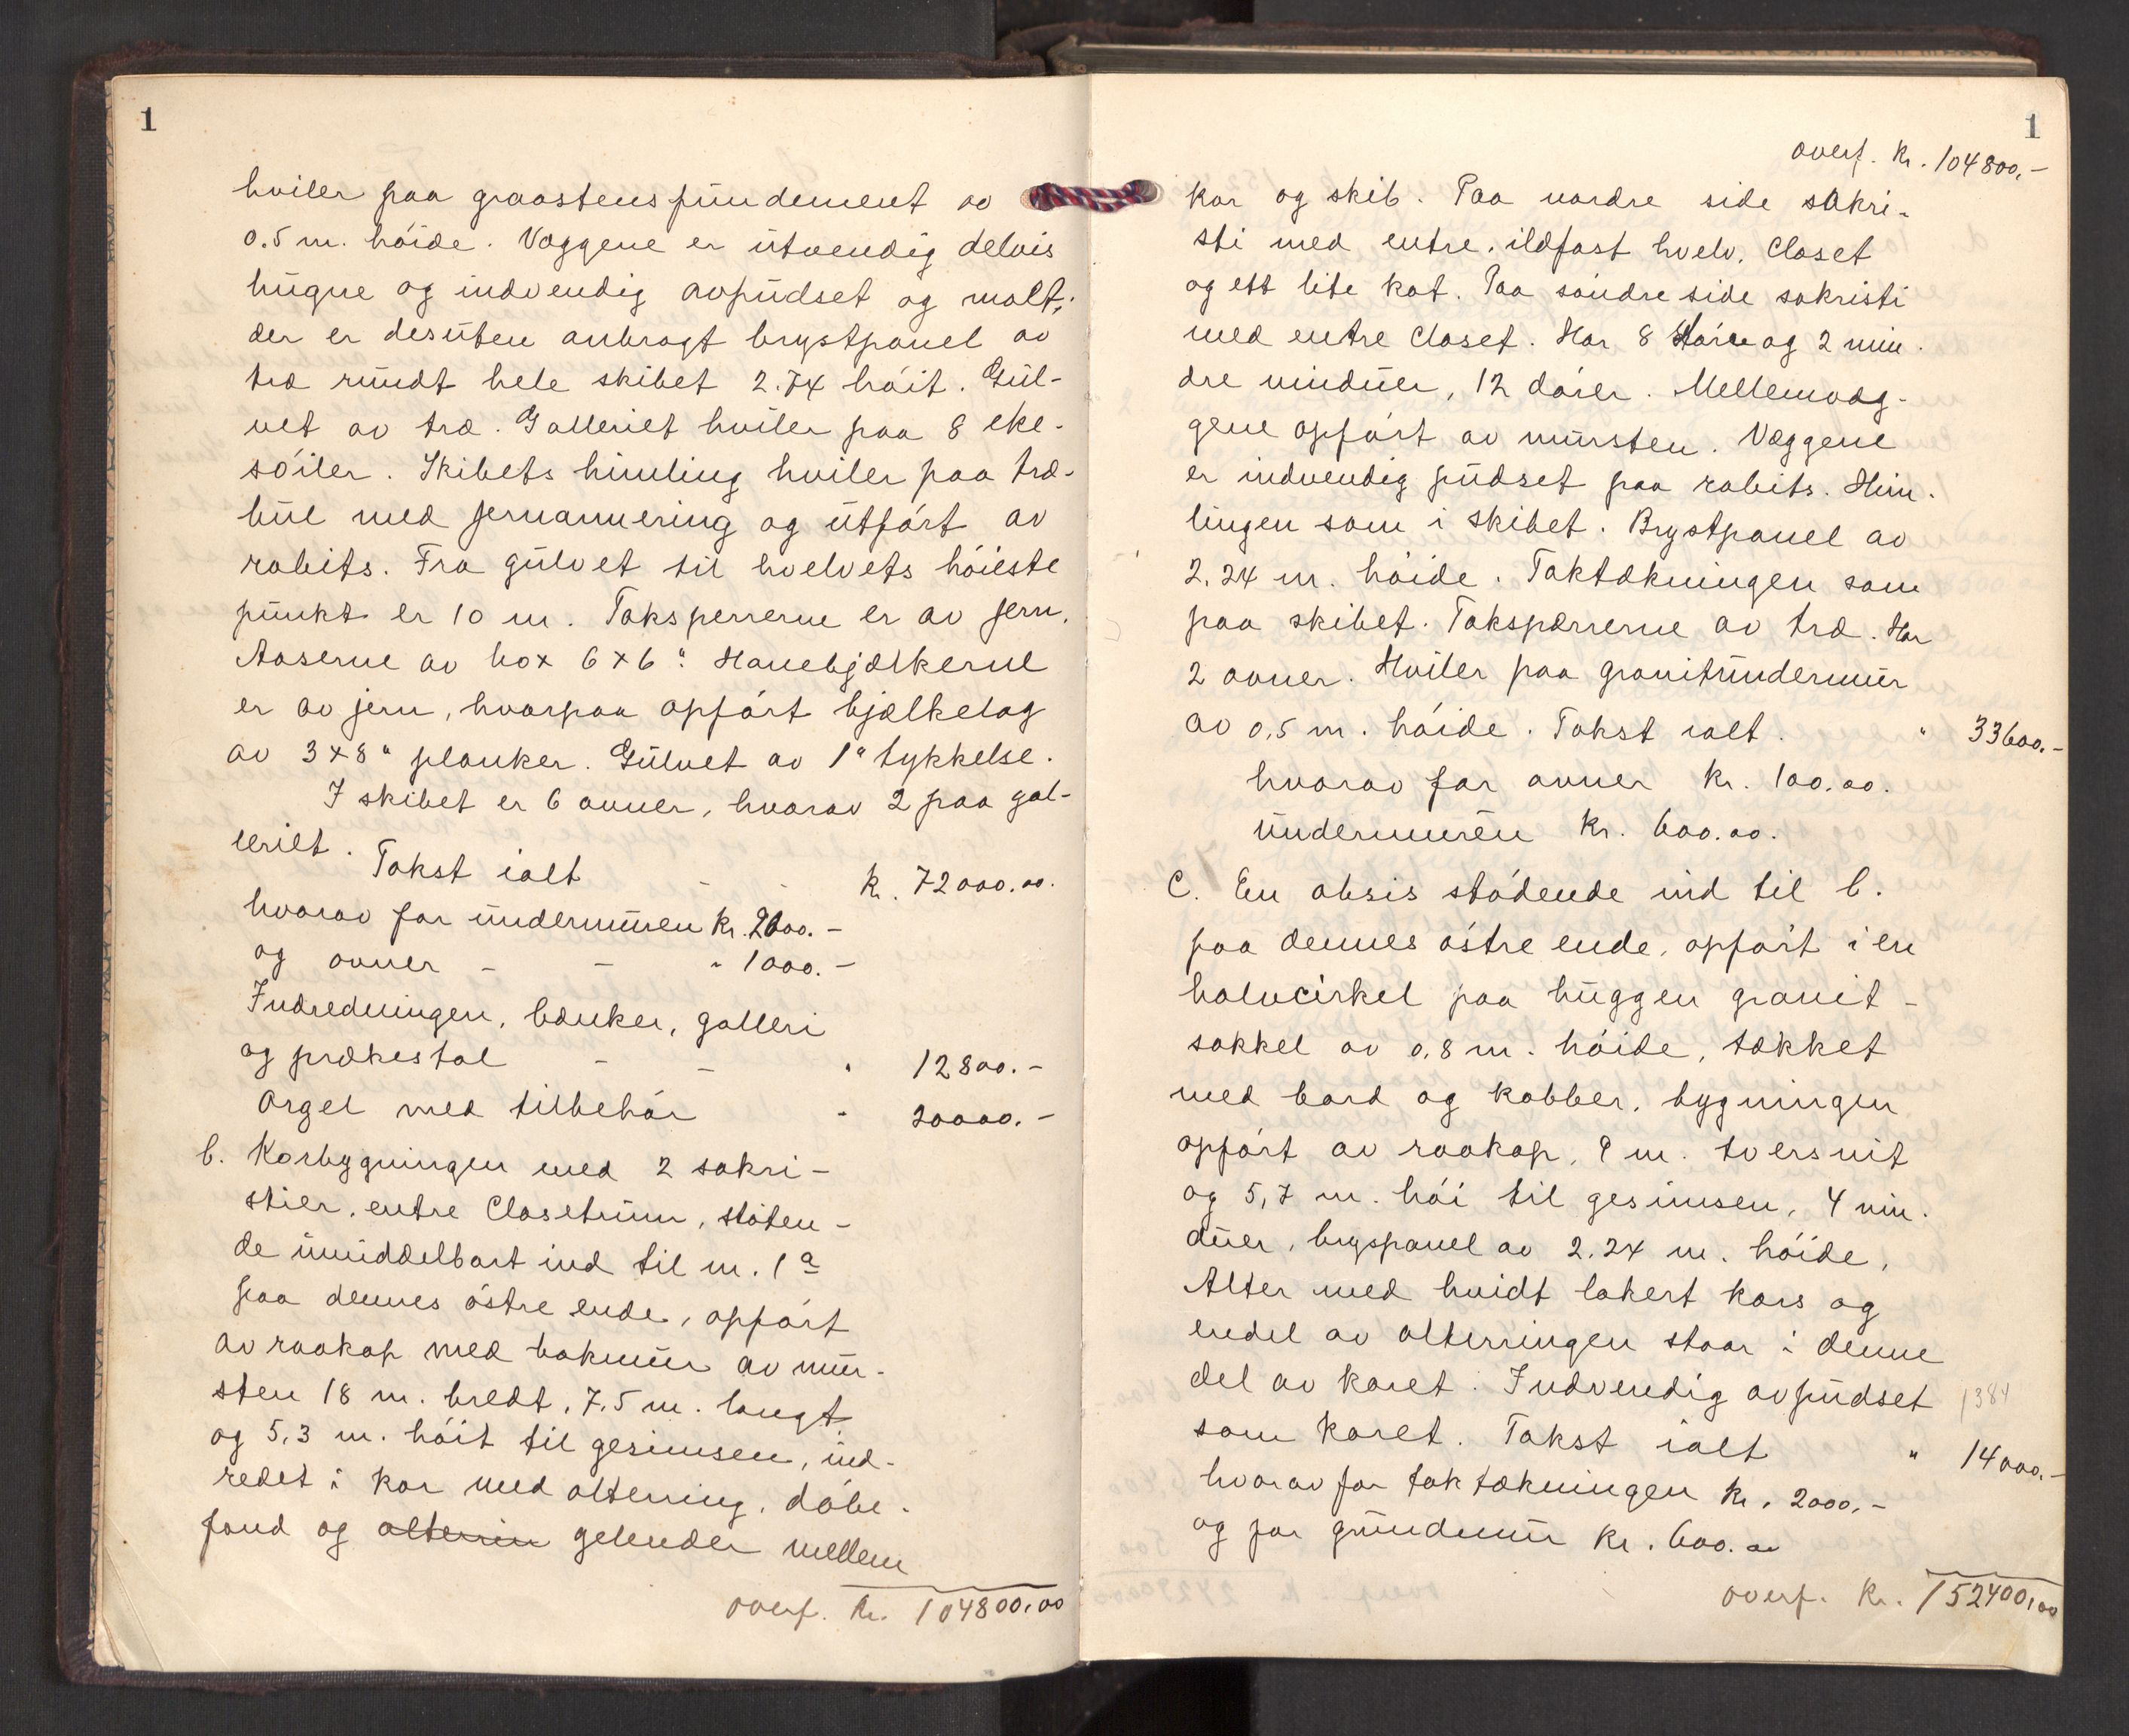 1
hviler paa graastensfundement av
0.5 m. høide. Væggene er utvendig delvis
hugne og indvendig avpudset og malt;
der er desuten anbragt brystpanel av
træ rundt hele skibet 2.74 høit. Gul-
vet av træ. Galleriet hviler paa 8 eke-
søiler. Skibets himling hviler paa træ-
bue med jernarmering og utført av
rabits. Fra gulvet til hvelvets høieste
punkt er 10 m. Taksperrerne er av jern.
Aaserne av box 6 x 6". Hanebjælkerne
er av jern, hvorpaa opført bjælkelag
av 3 x 8" planker. Gulvet av 1" tykkelse.
I skibet er 6 ovner, hvorav 2 paa gal-
leriet.
Takst ialt - - kr. 72000.00.
hvorav for undermuren kr. 2600.-
og ovner - - " 1000.-
Indredningen, bænker, galleri
og prækestol - - " 12800.-
Orgel med tilbehør " 20000.-
b. Korbygningen med 2 sakri-
stier, entre Closetrum, støten-
de umiddelbart ind til m. 1 a
paa dennes østre ende, opført
av raakop med bakmur av mur-
sten 18 m. bredt, 7,5 m. langt
og 5,3 m. høit til gesimsen, ind-
redet i kor med alterring, døbe-
fond og alterrin gelender mellem
overf. kr. 104800,00
1
overf. kr. 104800,-
kor og skib. Paa nordre side sakri-
sti med entre, ildfast hvelv, Closet
og ett lite kot. Paa søndre side sakristi
med entre Closet. Har 8 større og 2 min-
dre vinduer, 12 dører. Mellemvæg-
gene opført av mursten. Væggene
er indvendig pudset paa rabits. Him-
lingen som i skibet. Brystpanel av
2,24 m. høide. Taktækningen som
paa skibet. Taksperrerne av træ. Har
2 ovner. Hviler paa granitundermur
av 0,5 m. høide. Takst ialt. " 33600.-
hvorav for ovner kr. 100.00.
undermuren kr. 600.00.
C. En absis stødende ind til b.
paa dennes østre ende, opført i en
halvcirkel paa huggen granit-
sokkel av 0,8 m. høide, tækket
med bord og kobber, bygningen
opført av raakop, 9 m. tversnit
og 5,7 m. høi til gesimsen, 4 vin-
duer, bryspanel av 2.24 m. høide,
Alter med hvidt lakert kors og
endel av alterringen staar i denne
del av koret. Indvendig avpudset
1384
som koret. Takst ialt " 14000.-
hvorav for taktækningen kr. 2000.-
og for grundmur kr. 600.00
overf. kr. 152400,00